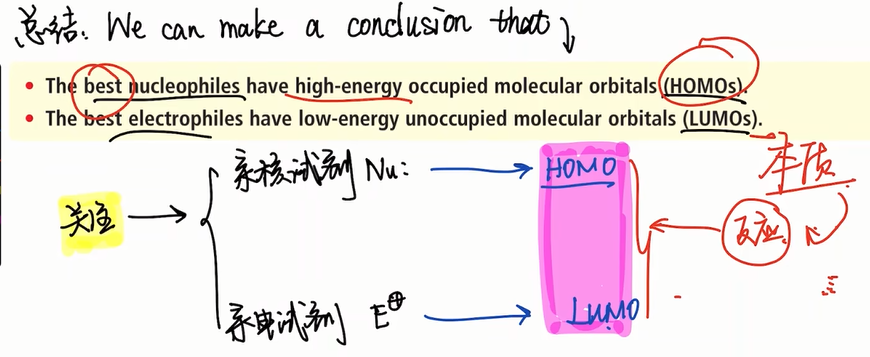 总结: We can make a conclusion that
• The best nucleophiles have high-energy occupied molecular orbitals (HOMOs).
• The best electrophiles have low-energy unoccupied molecular orbitals (LUMOs).
本质
亲核试剂 Nu: HOMO
关注 反应
亲电试剂 E⊕ LUMO